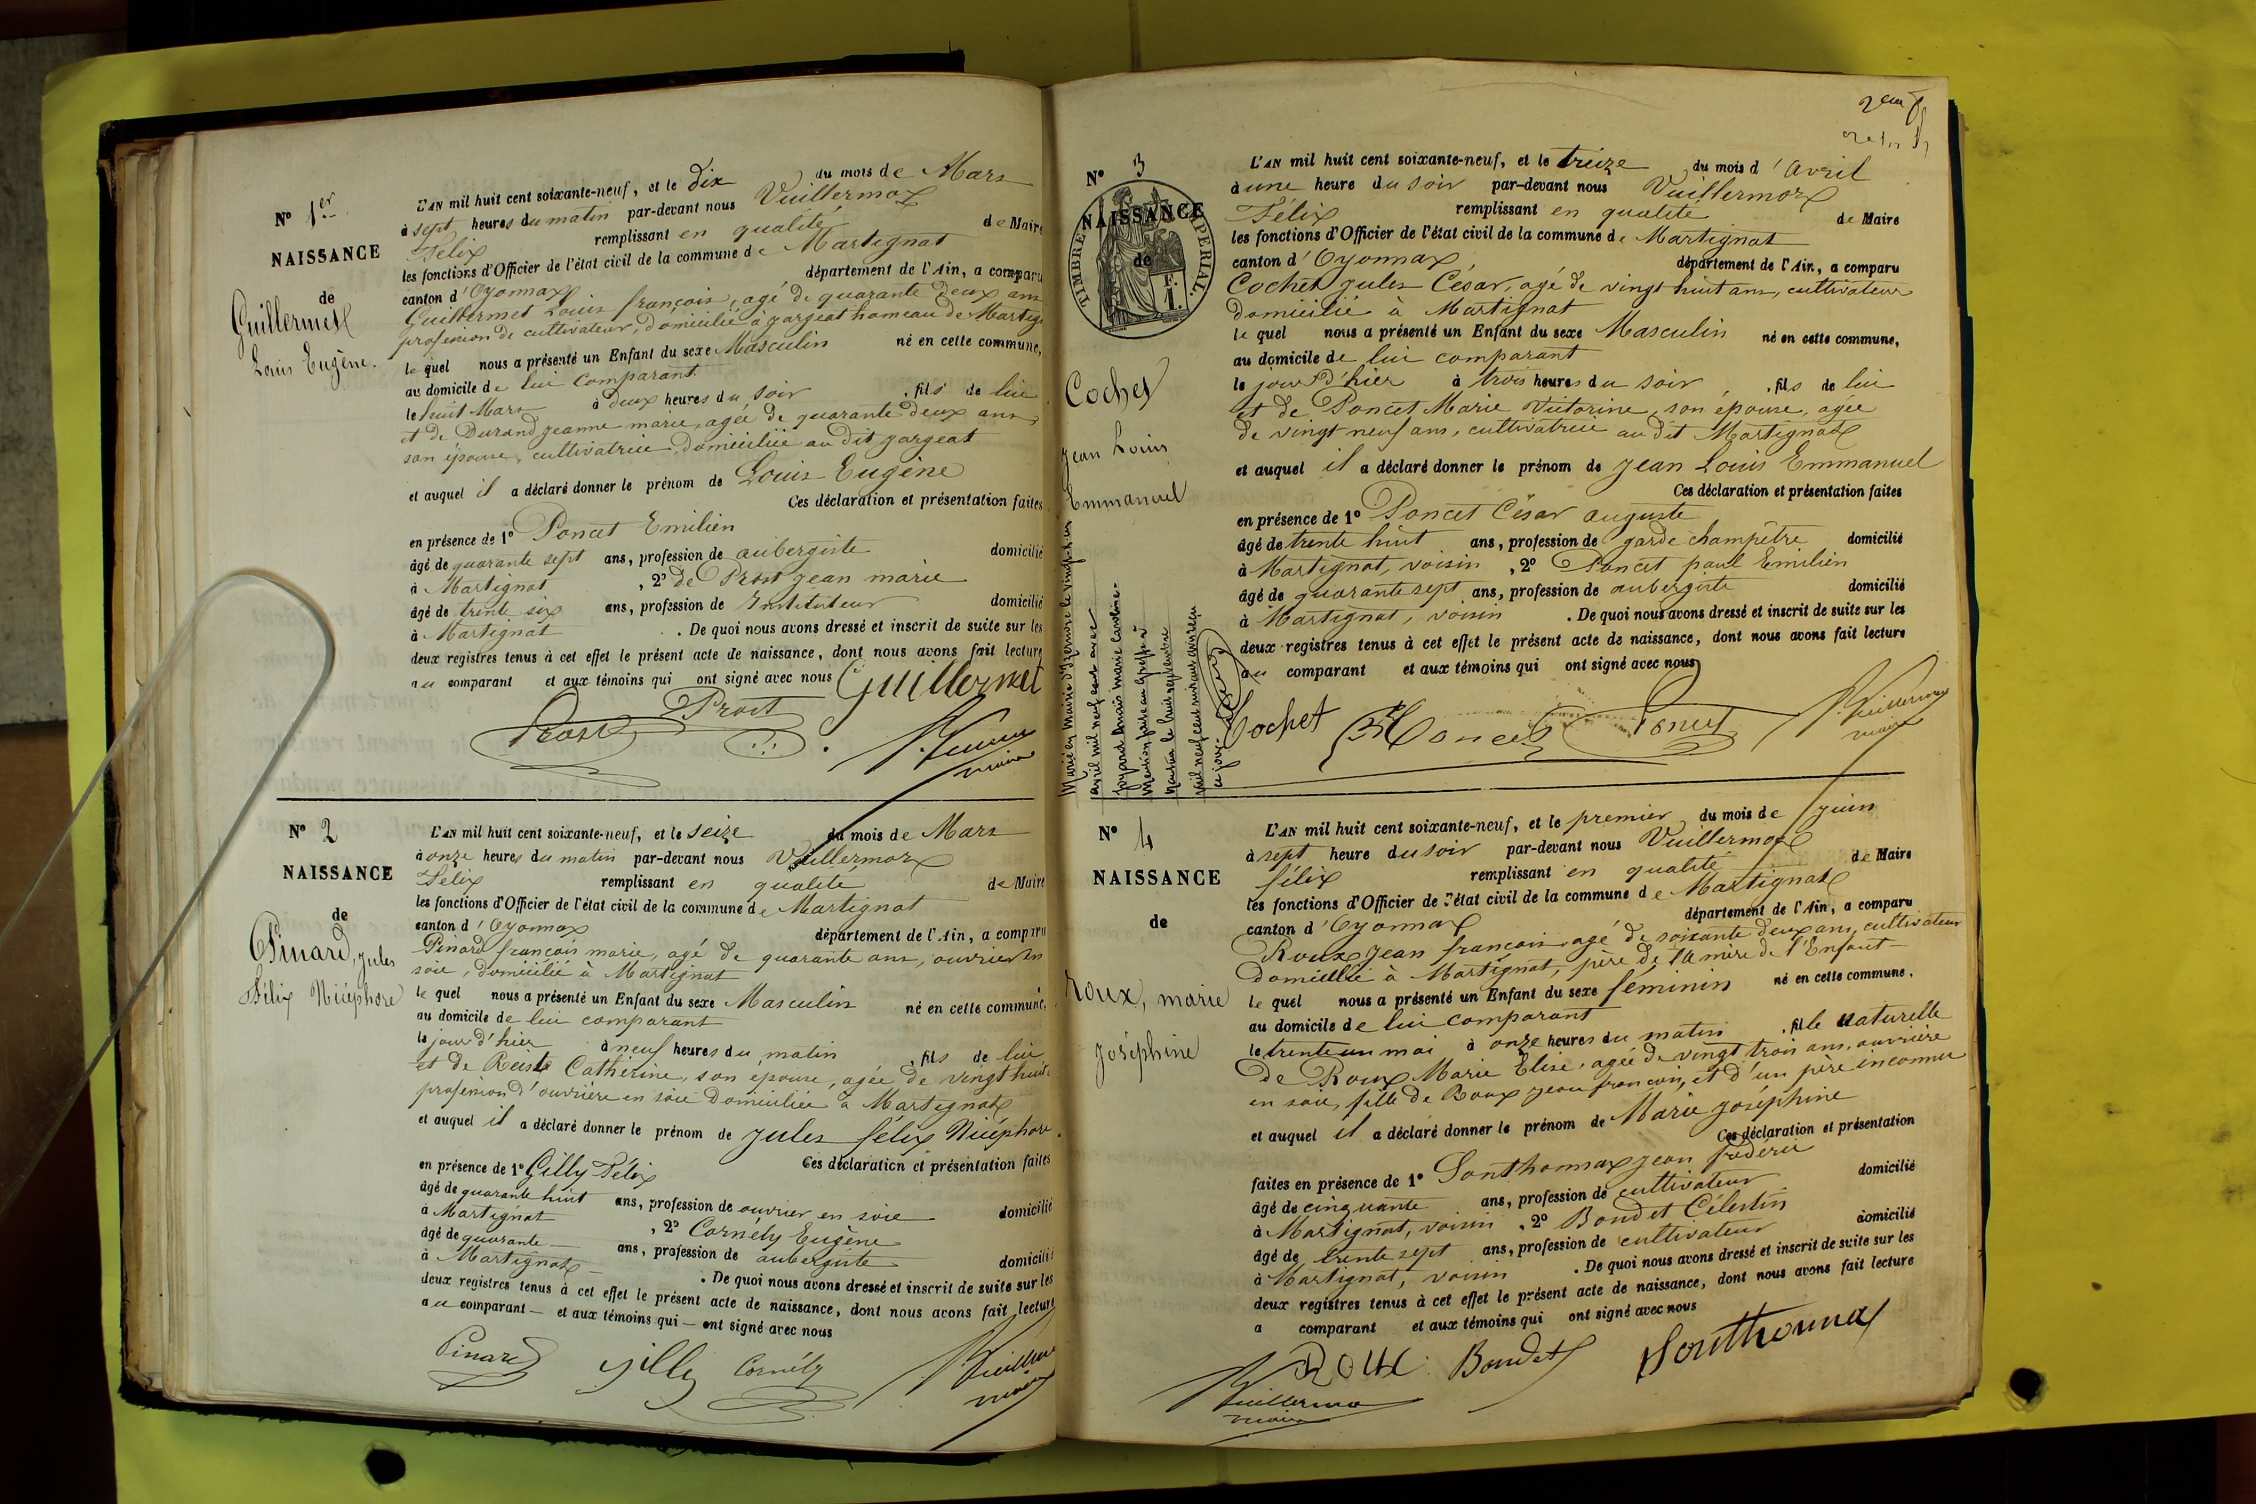 N° 1er
NAISSANCE
de
Guillermet
Louis Eugène.
L'AN mil huit cent soixante-neuf, et le dix du mois de Mars
à sept heures du matin par-devant nous Vuillermoz
Félix remplissant en qualité de Maire
les fonctions d'Officier de l'état civil de la commune de Martignat
canton d'Oyonnax département de l'Ain, a comparu
Guillermet Louis françois, agé de quarante deux ans
profession de cultivateur, domicilié à gargeat hameau de Martig
le quel nous a présenté un Enfant du sexe Masculin né en cette commune,
au domicile de lui comparant
le huit Mars à deux heures du soir, fils de lui
et de Durand jeanne marie, agée de quarante deux ans
son épouse, cultivatrice, domiciliée au dit gargeat
et auquel il a déclaré donner le prénom de Louis Eugène
Ces déclaration et présentation faites
en présence de 1° Poncet Emilien
âgé de quarante sept ans, profession de aubergiste domicilié
à Martignat, 2° de Prost jean marie
âgé de trente six ans, profession de Instituteur domicilié
à Martignat. De quoi nous avons dressé et inscrit de suite sur les
deux registres tenus à cet effet le présent acte de naissance, dont nous avons fait lecture
au comparant et aux témoins qui ont signé avec nous
Guillermet
Prost
maire
N° 2
NAISSANCE
de
Pinard, jules
Félix Nicéphore
L'AN mil huit cent soixante-neuf, et le seize du mois de Mars
à onze heures du matin par-devant nous Vuillermoz
Félix remplissant en qualité de Maire
les fonctions d'Officier de l'état civil de la commune de Martignat
canton d'Oyonnax département de l'Ain, a comparu
Pinard françois marie, agé de quarante ans, ouvrier en
soie, domicilié à Martignat
le quel nous a présenté un Enfant du sexe Masculin né en cette commune,
au domicile de lui comparant
le jour d'hier à neuf heures du matin, fils de lui
et de Catherine, son épouse, agée de vingt huit
profession d'ouvrière en soie domiciliée à Martignat
et auquel il a déclaré donner le prénom de jules félix Nicéphore.
Ces déclaration et présentation faites
en présence de 1° Gilly Félix
âgé de quarante huit ans, profession de ouvrier en soie domicilié
à Martignat, 2° Cornély Eugène
âgé de quarante ans, profession de aubergiste domicilié
à Martignat. De quoi nous avons dressé et inscrit de suite sur les
deux registres tenus à cet effet le présent acte de naissance, dont nous avons fait lecture
au comparant et aux témoins qui ont signé avec nous
Pinard Gilly Cornély Vuillermoz
maire
N° 3
TIMBRE IMPÉRIAL
NAISSANCE
de
F.
1.
Cochet
jean Louis
Emmanuel
L'AN mil huit cent soixante-neuf, et le treize du mois d'avril
à une heure du soir par-devant nous Vuillermoz
Félix remplissant en qualité de Maire
les fonctions d'Officier de l'état civil de la commune de Martignat
canton d'Oyonnax département de l'Ain, a comparu
Cochet jules César, agé de vingt huit ans, cultivateur
domicilié à Martignat
le quel nous a présenté un Enfant du sexe Masculin né en cette commune,
au domicile de lui comparant
le jour d'hier à trois heures du soir, fils de lui
et de Poncet Marie Victorine, son épouse, agée
de vingt neuf ans, cultivatrice au dit Martignat
et auquel il a déclaré donner le prénom de jean Louis Emmanuel
Ces déclaration et présentation faites
en présence de 1° Poncet César auguste
âgé de trente huit ans, profession de garde champêtre domicilié
à Martignat, voisin, 2° Poncet paul Emilien
âgé de quarante sept ans, profession de aubergiste domicilié
à Martignat, voisin. De quoi nous avons dressé et inscrit de suite sur les
deux registres tenus à cet effet le présent acte de naissance, dont nous avons fait lecture
au comparant et aux témoins qui ont signé avec nous
Cochet Poncet Poncet Vuillermoz
maire
N° 4
NAISSANCE
de
Roux, marie
joséphine
L'AN mil huit cent soixante-neuf, et le premier du mois de juin
à sept heure du soir par-devant nous Vuillermoz
félix remplissant en qualité de Maire
les fonctions d'Officier de l'état civil de la commune de Martignat
canton d'Oyonnax département de l'Ain, a comparu
Roux jean françois agé de soixante deux ans, cultivateur
domicilié à Martignat, père de la mère de l'Enfant
le quel nous a présenté un Enfant du sexe féminin né en cette commune.
au domicile de lui comparant
le trente un mai à onze heures du matin, fille naturelle
de Roux Marie Elise, agée de vingt trois ans, ouvrière
en soie, fille de Roux jean françois, et d'un père inconnu
et auquel il a déclaré donner le prénom de Marie joséphine
Ces déclaration et présentation
faites en présence de 1° Sonthonnax jean frédéric
âgé de cinquante ans, profession de cultivateur domicilié
à Martignat, voisin, 2° Bondet Célestin
âgé de trente sept ans, profession de cultivateur domicilié
à Martignat, voisin. De quoi nous avons dressé et inscrit de suite sur les
deux registres tenus à cet effet le présent acte de naissance, dont nous avons fait lecture
a comparant et aux témoins qui ont signé avec nous
Roux Bondet Sonthonnax
Vuillermoz
maire